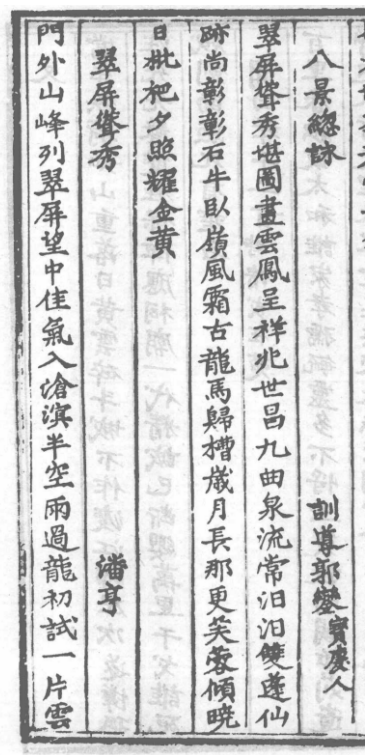 八景總詠 訓導郭鑾實慶人
翠屏聳秀堪圖畫雲鳳呈祥兆世昌九曲泉流常汩汩雙蓮仙
跡尚彰彰石牛臥嶺風霜古龍馬歸槽歲月長那更芙蓉傾曉
日枇杷夕照耀金黄
翠屏聳秀 潘亨
門外山峰列翠屏望中佳氣入滄溟半空雨過龍初試一片雲